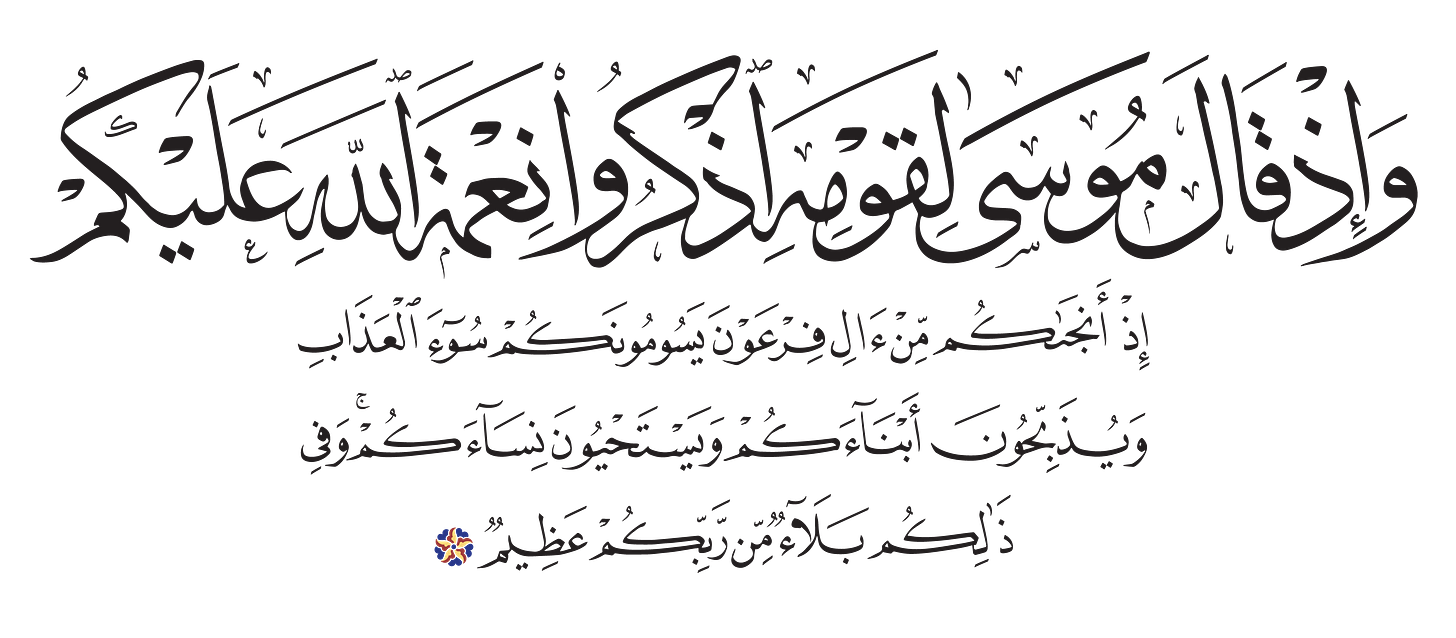 وَإِذْ قَالَ مُوسَىٰ لِقَوْمِهِ ٱذْكُرُوا۟ نِعْمَةَ ٱللَّهِ عَلَيْكُمْ
إِذْ أَنجَىٰكُم مِّنْ ءَالِ فِرْعَوْنَ يَسُومُونَكُمْ سُوٓءَ ٱلْعَذَابِ
وَيُذَبِّحُونَ أَبْنَآءَكُمْ وَيَسْتَحْيُونَ نِسَآءَكُمْ ۚ وَفِى
ذَٰلِكُم بَلَآءٌ مِّن رَّبِّكُمْ عَظِيمٌ